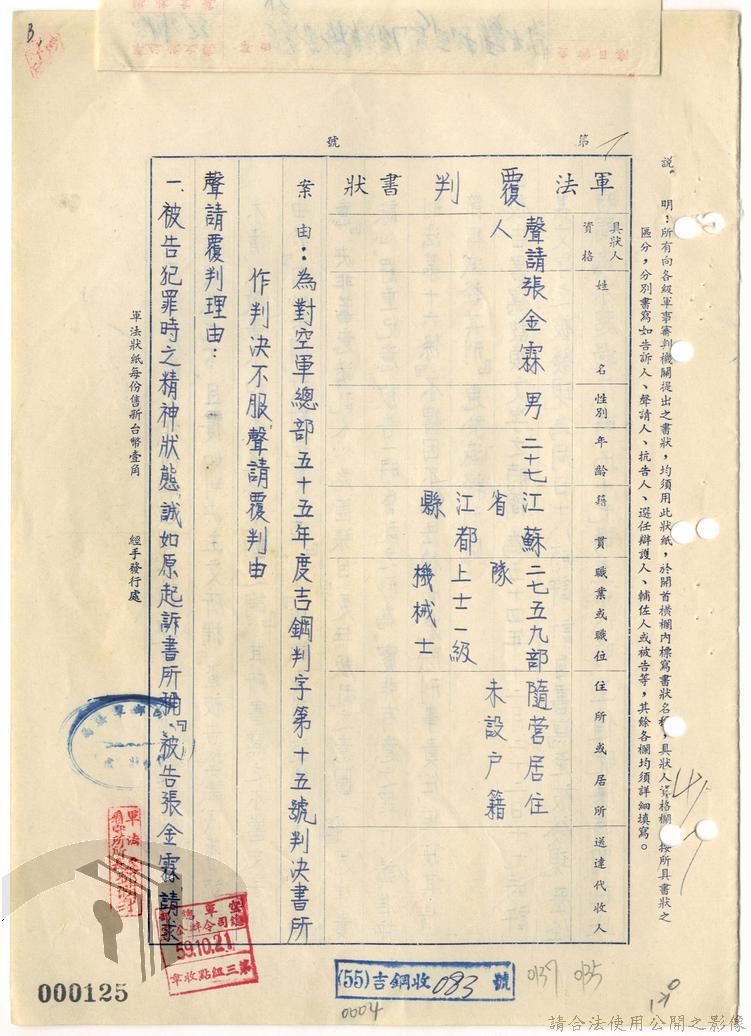 第
號
說明：所有向各級軍事審判機關提出之書狀，均須用此狀紙，於開首橫欄內標寫書狀名稱，具狀人資格欄，按所具書狀之
區分，分別書寫如告訴人、聲請人、抗告人、選任辯護人、輔佐人或被告等，其餘各欄均須詳細填寫。
軍法覆判書狀
具狀人資格
姓名
性別
年齡
籍貫
職業或職位
住所或居所
送達代收人
聲請人
張金霖
男
二十七
江蘇省
江都縣
二七五九部隊
上士一級
機械士
隨營居住
未設户籍
案由：為對空軍總部五十五年度吉鋼判字第十五號判决書所
作判决不服聲請覆判由
聲請覆判理由：
一、被告犯罪時之精神狀態，誠如原起訴書所稱：『被告張金霖請求
軍法狀紙每份售新台幣壹角
經手發行處
空軍總司令部
59.10.21
第三組點收章
(55)吉鋼收083號
0137
0135
0004
000125
請合法使用公開之影像